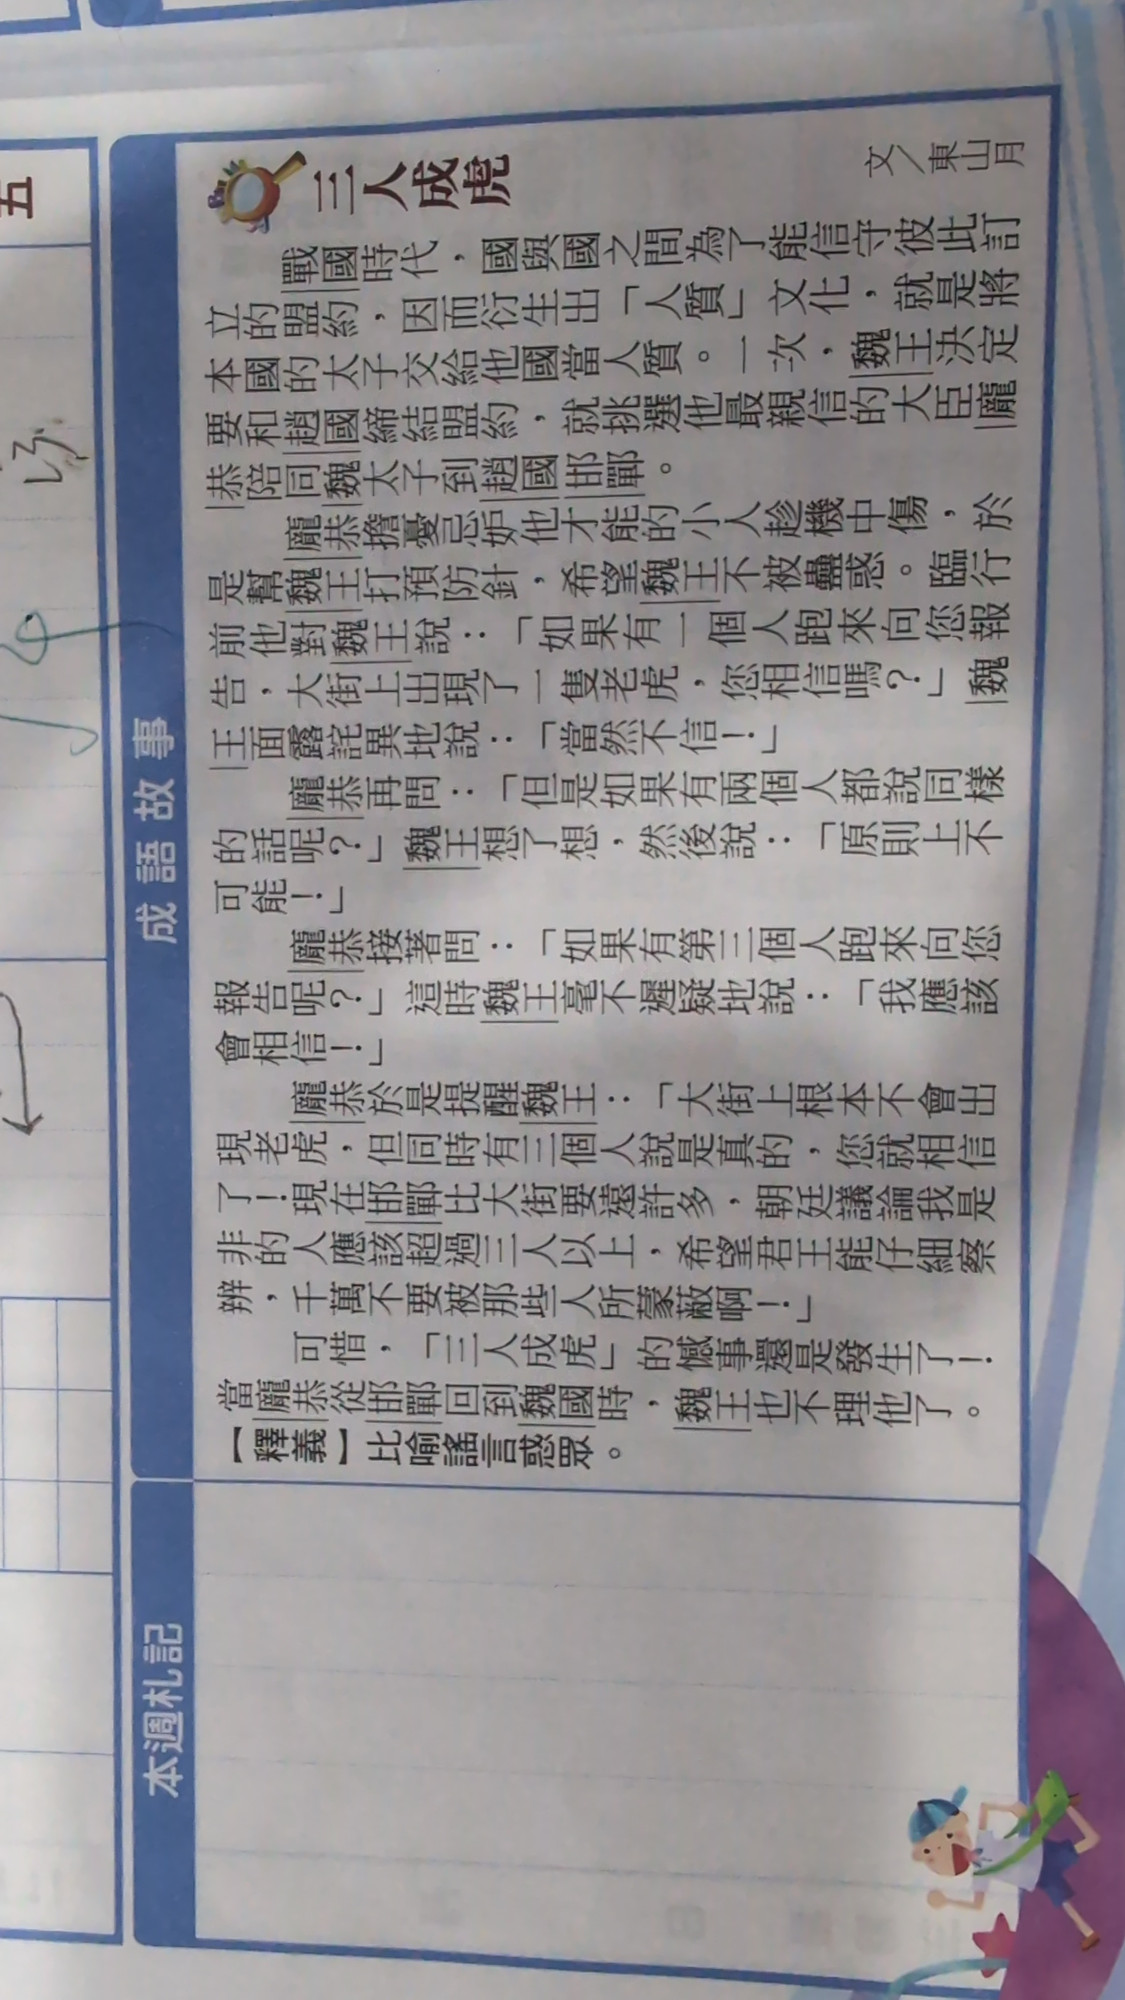 五
成語故事
三人成虎
文／東山月
戰國時代，國與國之間為了能信守彼此訂
立的盟約，因而衍生出「人質」文化，就是將
本國的太子交給他國當人質。一次，魏王決定
要和趙國締結盟約，就挑選他最親信的大臣龐
恭陪同魏太子到趙國邯鄲。
龐恭擔憂忌妒他才能的小人趁機中傷，於
是幫魏王打預防針，希望魏王不被蠱惑。臨行
前他對魏王說：「如果有一個人跑來向您報
告，大街上出現了一隻老虎，您相信嗎？」魏
王面露詫異地說：「當然不信！」
龐恭再問：「但是如果有兩個人都說同樣
的話呢？」魏王想了想，然後說：「原則上不
可能！」
龐恭接著問：「如果有第三個人跑來向您
報告呢？」這時魏王毫不遲疑地說：「我應該
會相信！」
龐恭於是提醒魏王：「大街上根本不會出
現老虎，但同時有三個人說是真的，您就相信
了！現在邯鄲比大街要遠許多，朝廷議論我是
非的人應該超過三人以上，希望君王能仔細察
辨，千萬不要被那些人所蒙蔽啊！」
可惜，「三人成虎」的憾事還是發生了！
當龐恭從邯鄲回到魏國時，魏王也不理他了。
【釋義】比喻謠言惑眾。
本週札記